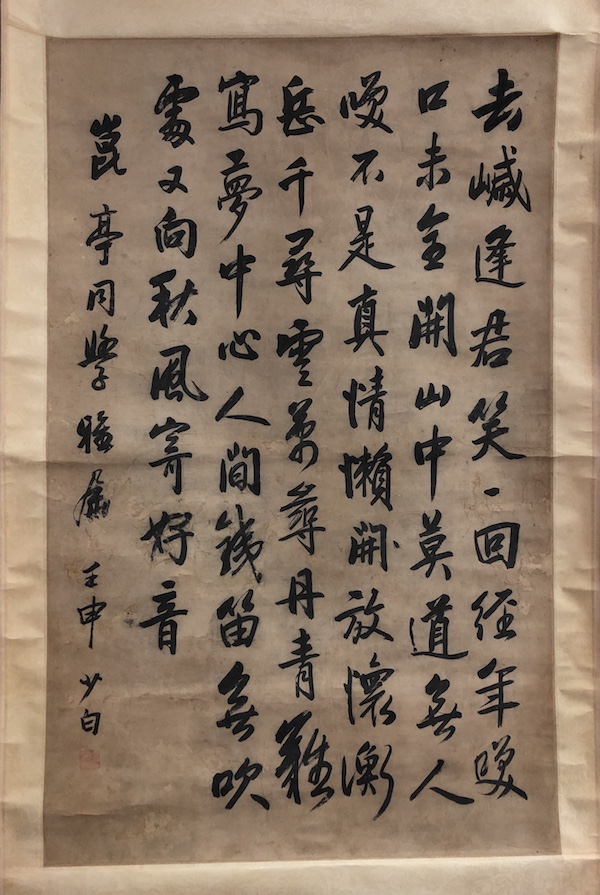 去逢君笑一回經年咲
口未全開山中莫道無人
咲不是真情懶開放懷衡
岳千尋雲萬尋丹青難
寫夢中心人間鐵笛無吹
處又向秋風寄好音
崑亭同學雅屬 壬申 少白